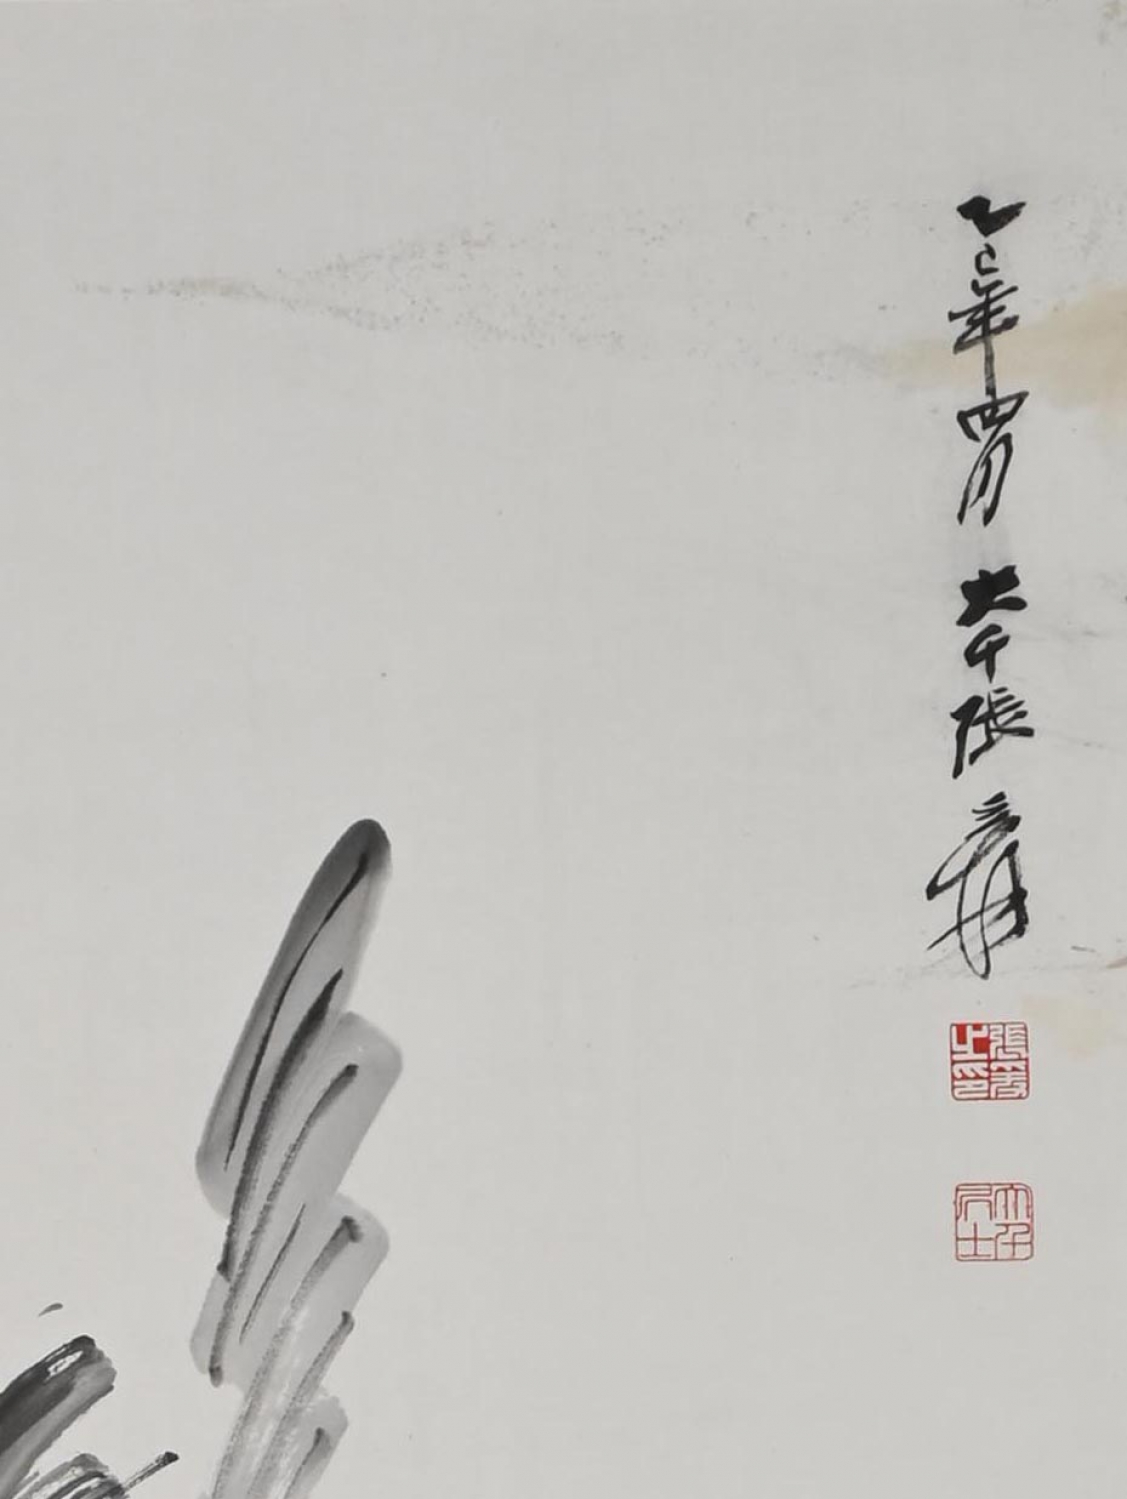 乙巳年四月 大千張爰
張爰之印
大千居士